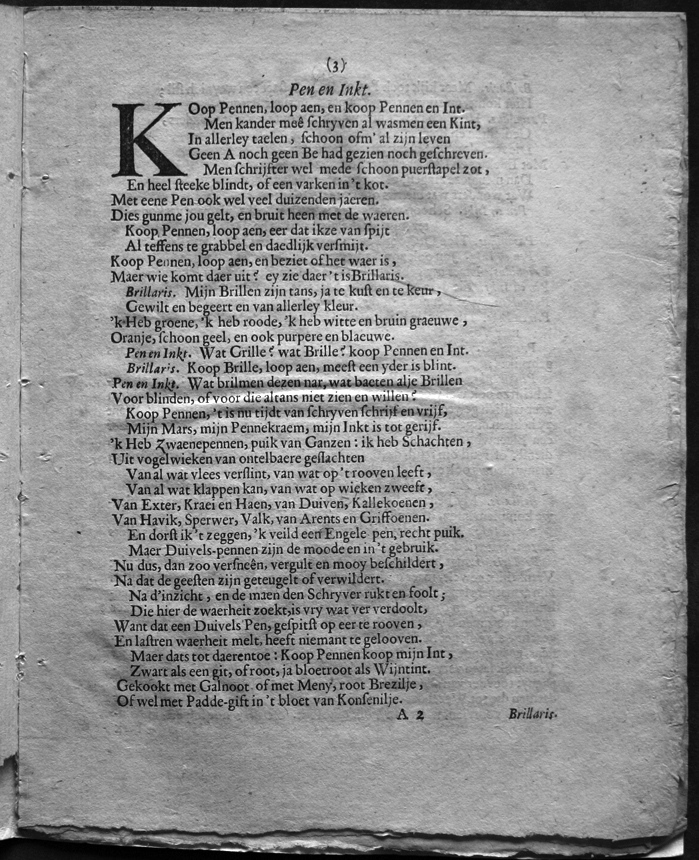 (3)
Pen en Inkt.
KOop Pennen, loop aen, en koop Pennen en Int.
Men kander meê ſchryven al wasmen een Kint,
In allerley taelen, ſchoon ofm' al zijn leven
Geen A noch geen Be had gezien noch geſchreven.
Men ſchrijfter wel mede ſchoon puerſtapel zot,
En heel ſteeke blindt, of een varken in 't kot.
Met eene Pen ook wel veel duizenden jaeren.
Dies gunme jou gelt, en bruit heen met de waeren.
Koop Pennen, loop aen, eer dat ikze van ſpijt
Al teffens te grabbel en daedlijk verſmijt.
Koop Pennen, loop aen, en beziet of het waer is,
Maer wie komt daer uit? ey zie daer 't is Brillaris.
Brillaris. Mijn Brillen zijn tans, ja te kuſt en te keur,
Gewilt en begeert en van allerley kleur.
'k Heb groene, 'k heb roode, 'k heb witte en bruin graeuwe,
Oranje, ſchoon geel, en ook purpere en blaeuwe.
Pen en Inkt. Wat Grille? wat Brille? koop Pennen en Int.
Brillaris. Koop Brille, loop aen, meeſt een yder is blint.
Pen en Inkt. Wat brilmen dezen nar, wat baeten alje Brillen
Voor blinden, of voor die altans niet zien en willen?
Koop Pennen, 't is nu tijdt van ſchryven ſchrijf en vrijf,
Mijn Mars, mijn Pennekraem, mijn Inkt is tot gerijf.
'k Heb Zwaenepennen, puik van Ganzen: ik heb Schachten,
Uit vogelwieken van ontelbaere geſlachten
Van al wat vlees verſlint, van wat op 't rooven leeft,
Van al wat klappen kan, van wat op wieken zweeft,
Van Exter, Kraei en Haen, van Duiven, Kallekoenen,
Van Havik, Sperwer, Valk, van Arents en Griffoenen.
En dorſt ik 't zeggen, 'k veild een Engele pen, recht puik.
Maer Duivels-pennen zijn de moode en in 't gebruik.
Nu dus, dan zoo verſneên, vergult en mooy beſchildert,
Na dat de geeſten zijn geteugelt of verwildert.
Na d'inzicht, en de maen den Schryver rukt en foolt;
Die hier de waerheit zoekt, is vry wat ver verdoolt,
Want dat een Duivels Pen, geſpitſt op eer te rooven,
En laſtren waerheit melt, heeft niemant te gelooven.
Maer dats tot daerentoe: Koop Pennen koop mijn Int,
Zwart als een git, of root, ja bloetroot als Wijntint.
Gekookt met Galnoot of met Meny, root Brezilje,
Of wel met Padde-gift in 't bloet van Konſenilje.
A 2 Brillaris.